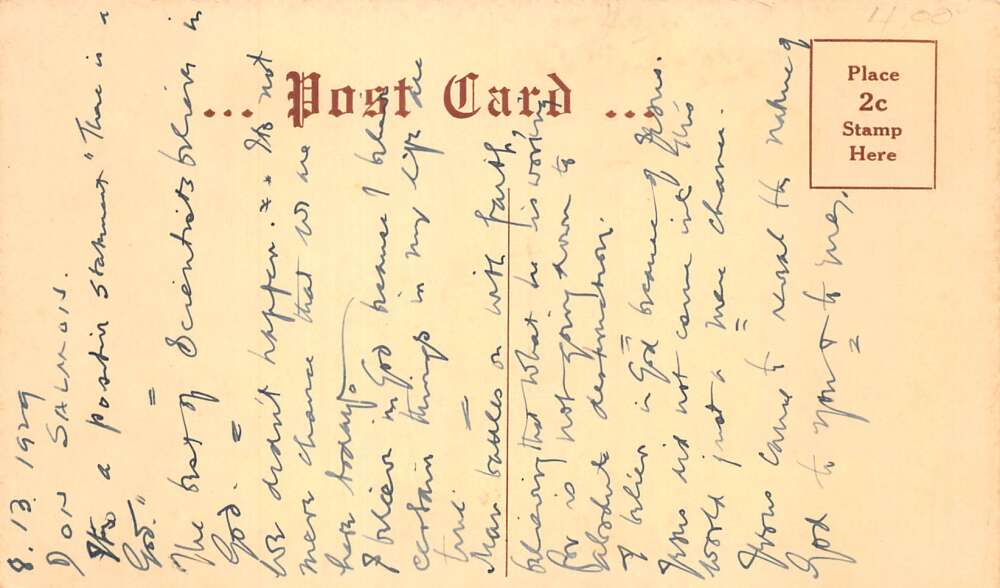 8.13.1929
DON SALMOIS.
Its a positiv statement "There is a
God."
The best of Scientists believe in
God.
We didn't happen. Its not
mere chance that we are
here today
I believe in God because I believe
certain things in my life are
true
Man battles on with faith,
believing that what he is working
for is not going down to
absolute destruction.
I believe in God because of Jesus.
Jesus did not come into this
world just a mere chance.
Jesus came to reveal the nature of
God to you & to me,
... Post Card ...
Place
2c
Stamp
Here
11 00